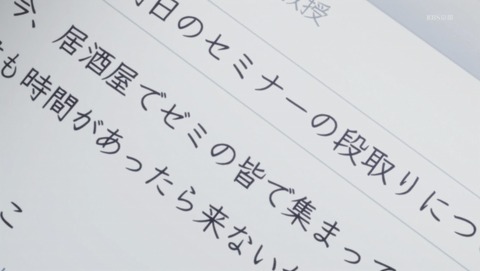 教授
明日のセミナーの段取りにつ
今、居酒屋でゼミの皆で集まって
も時間があったら来ない
こ